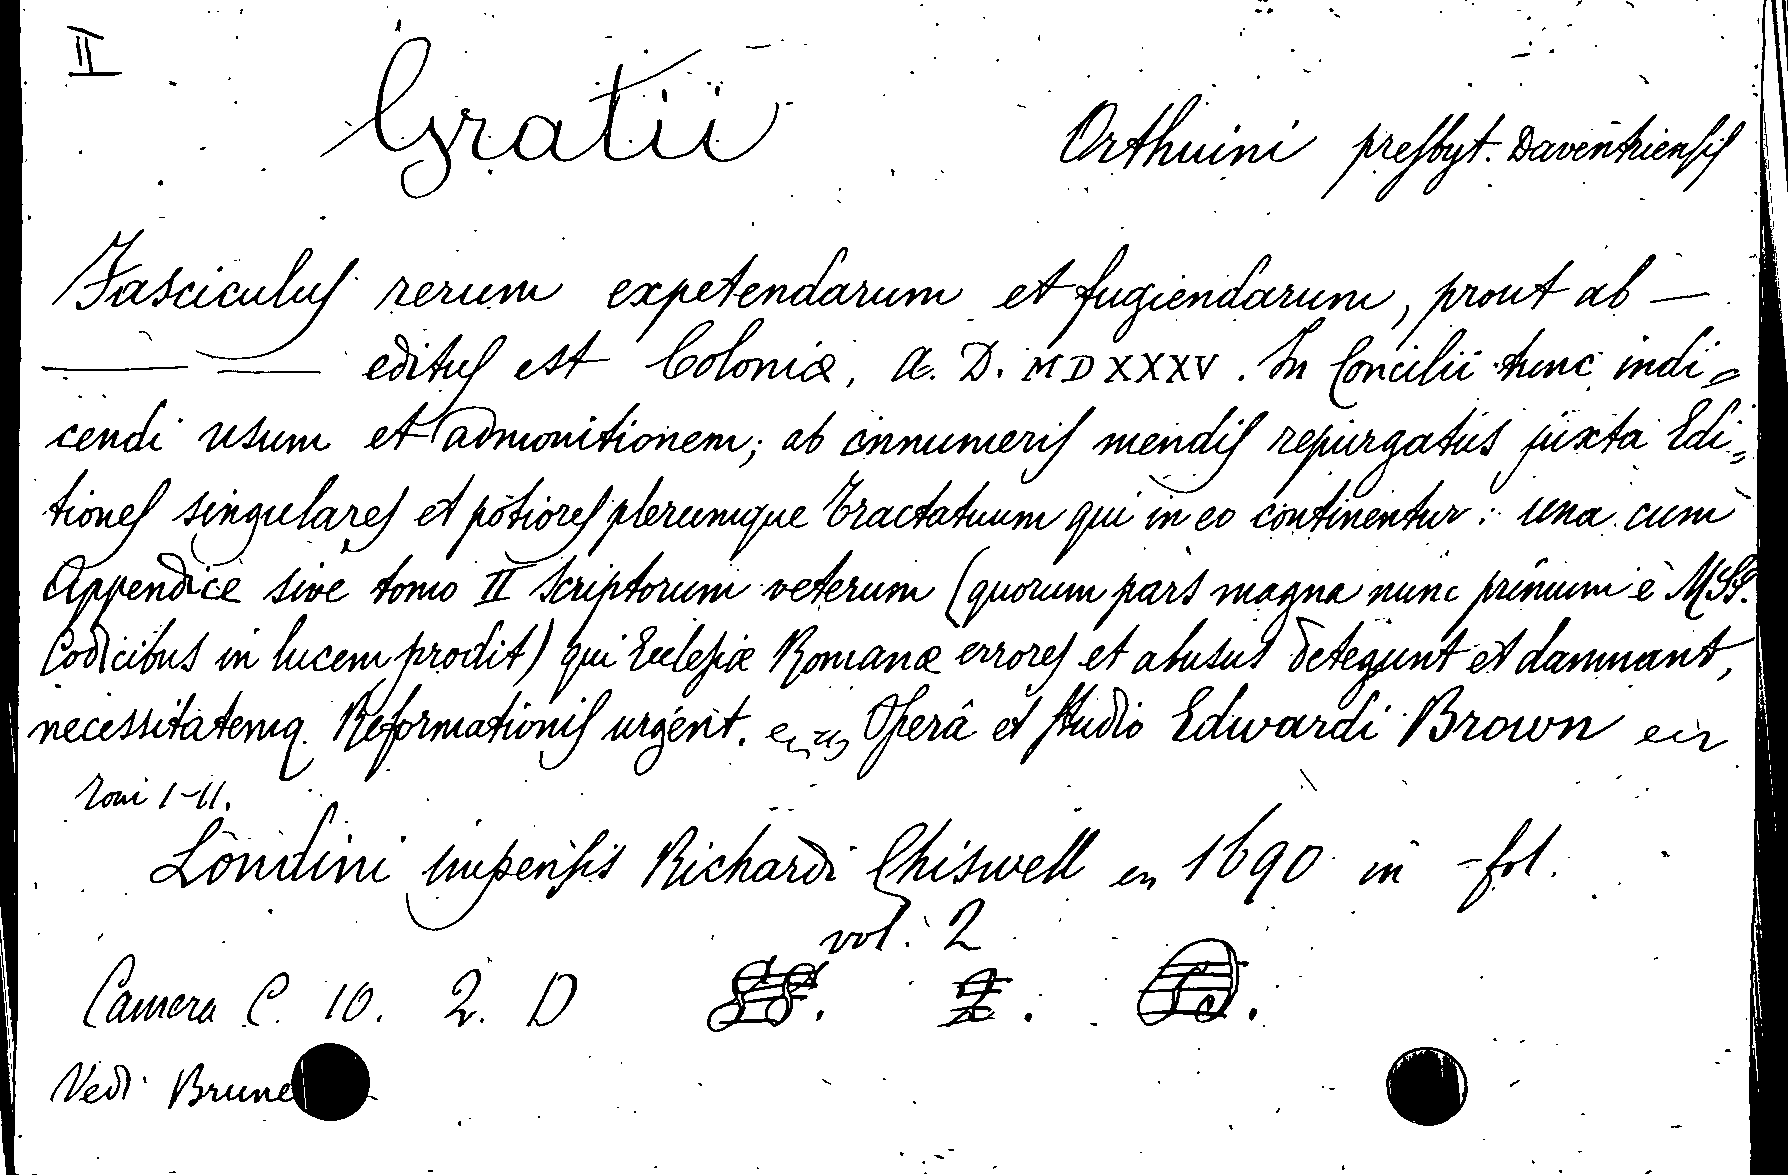 II
Gratii Orthuini presbyt. Daventriensis
Fasciculus rerum expetendarum et fugiendarum, prout ab —
— — editus est Coloniæ, A. D. MDXXXV. In Concilii tunc indi=
cendi usum et admonitionem; ab innumeris mendis repurgatus juxta Edi=
tiones singulares et potiores plerumque Tractatuum qui in eo continentur: una cum
Appendice sive tomo II scriptorum veterum (quorum pars magna nunc primum è MSS.
Codicibus in lucem prodit) qui Ecclesiæ Romanæ errores et abusus detegunt et damnant,
necessitatemq. Reformationis urgent. Operâ et studio Edwardi Brown
Tomi I-II.
Londini impensis Richardi Chiswell 1690 in-fol.
vol. 2
Camera C. 10. 2. D
Vedi Brune